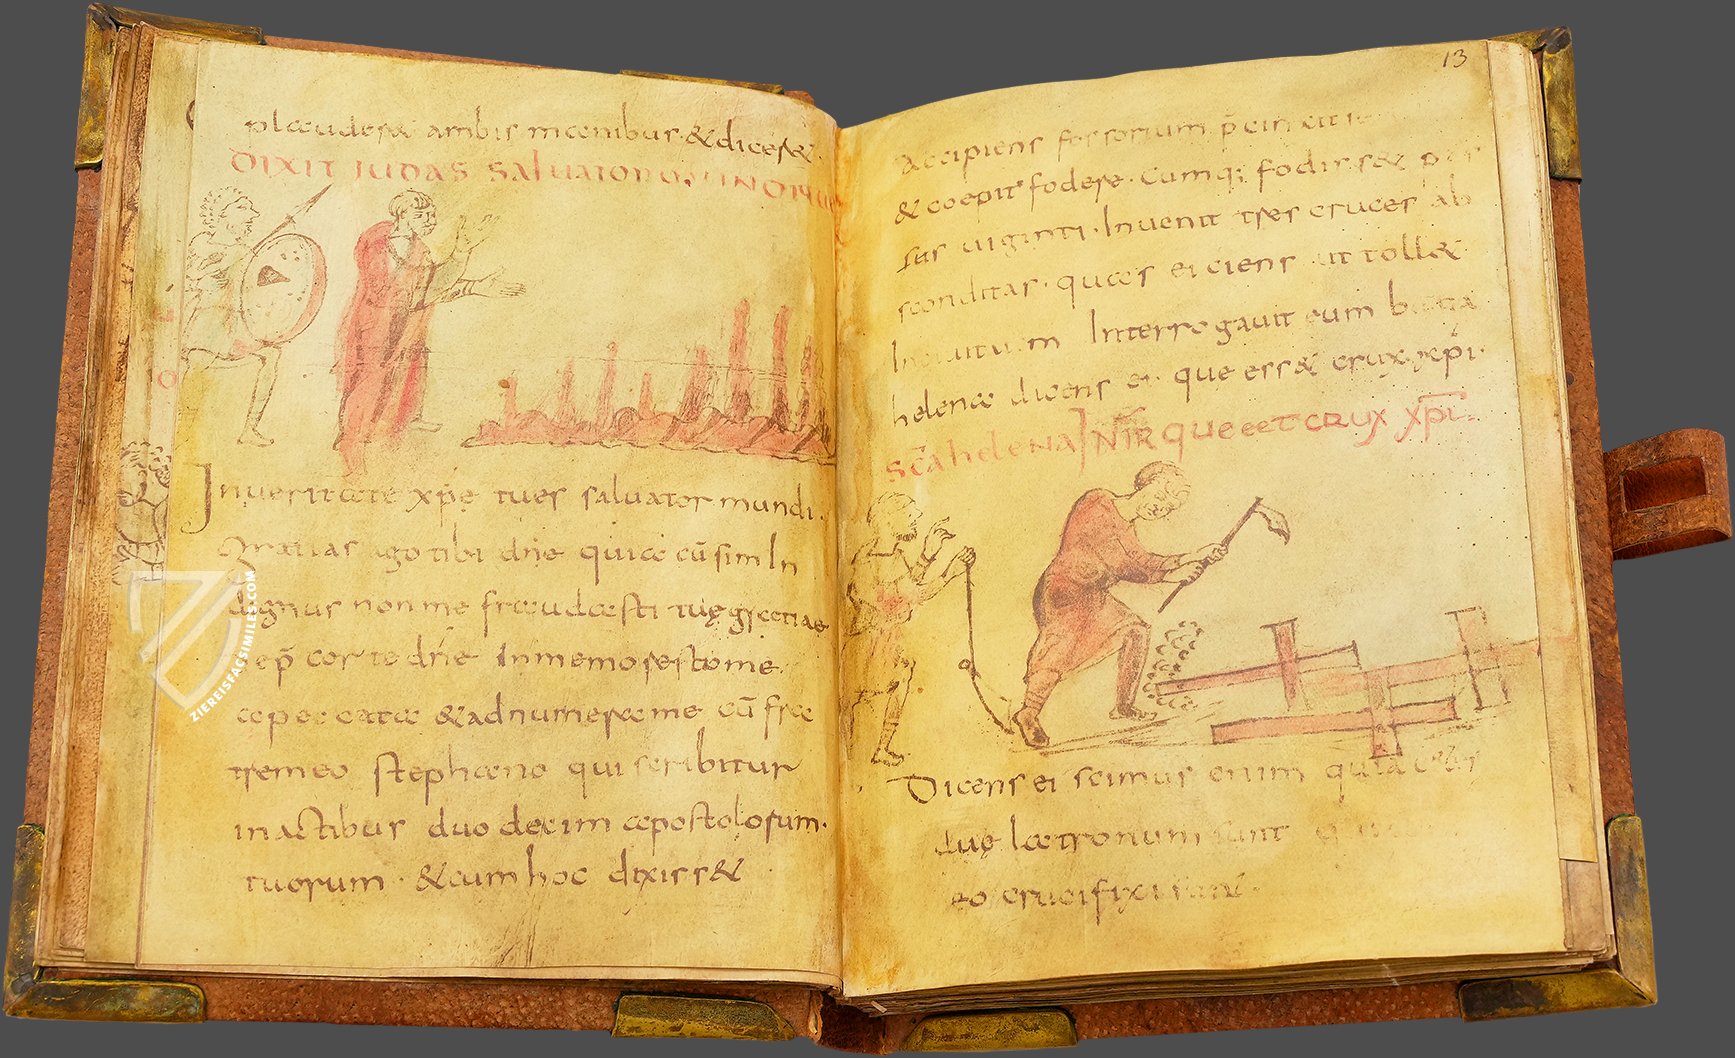 plauderet ambis manibus & diceret.
DIXIT IUDAS SALUATOR
In ueritate xp̄e tu es saluator mundi.
Gratias ago tibi dn̄e quia cū sim In
dignus non me fraudasti tuę gratiae
dep̄cor te dn̄e Inmemoresto me
a peccata & adnumera me cū fra
trem eo stephano qui scribitur
in actibus duodecim apostolorum.
tuorum. & cum hoc dixiss&
13
Accipiens fossorium p̄cinxit
& coepit fodere. Cumq; fodiss&
sus uiginti. Inuenit tres cruces ab
sconditas. quas eiciens tollit
Interrogauit eum beata
helena dicens ei. que ess& crux xp̄i.
SC̄A HELENA INTR QUE EET CRUX XP̄I.
Dicens ei scimus enim quia
duę latronum sunt
eo crucifixi
ZIEREISFACSIMILES.COM